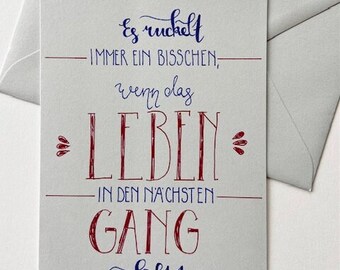 Es ruckelt
IMMER EIN BISSCHEN,
wenn das
LEBEN
IN DEN NÄCHSTEN
GANG